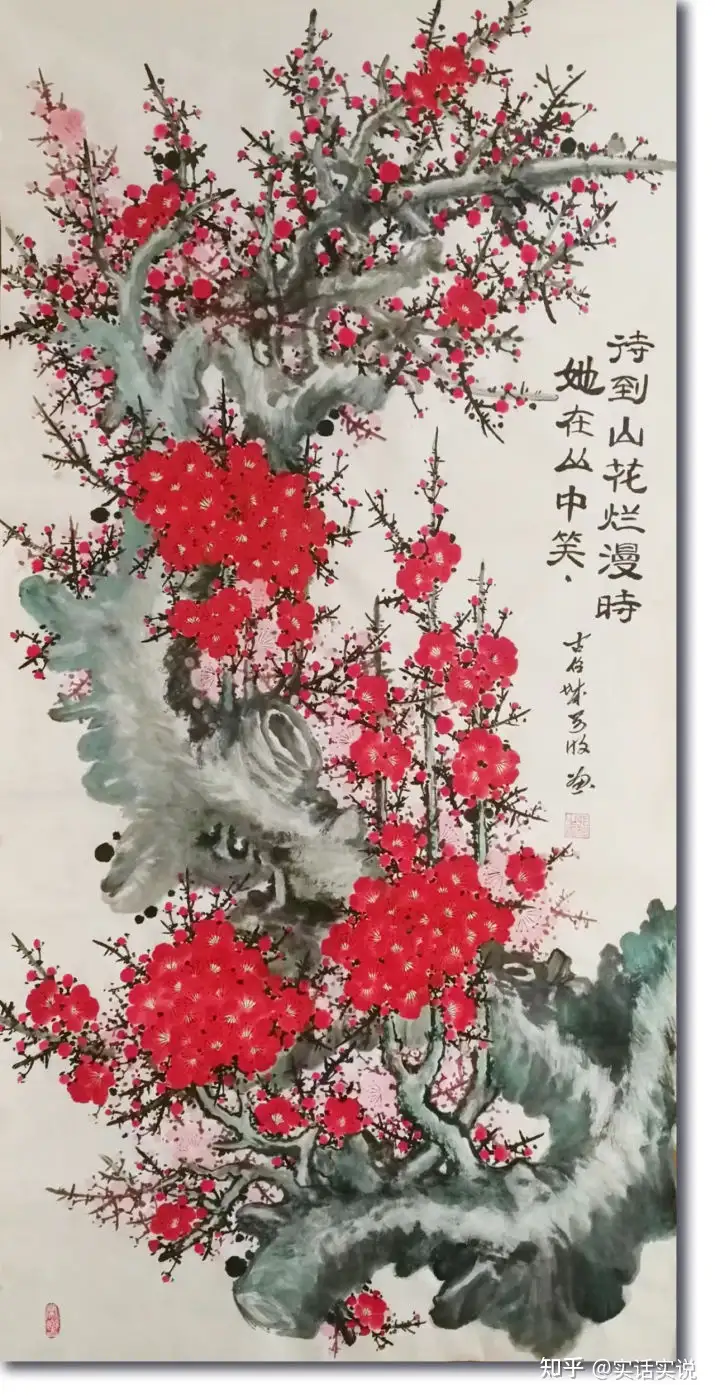 待到山花烂漫時
她在丛中笑、
知乎 @实话实说